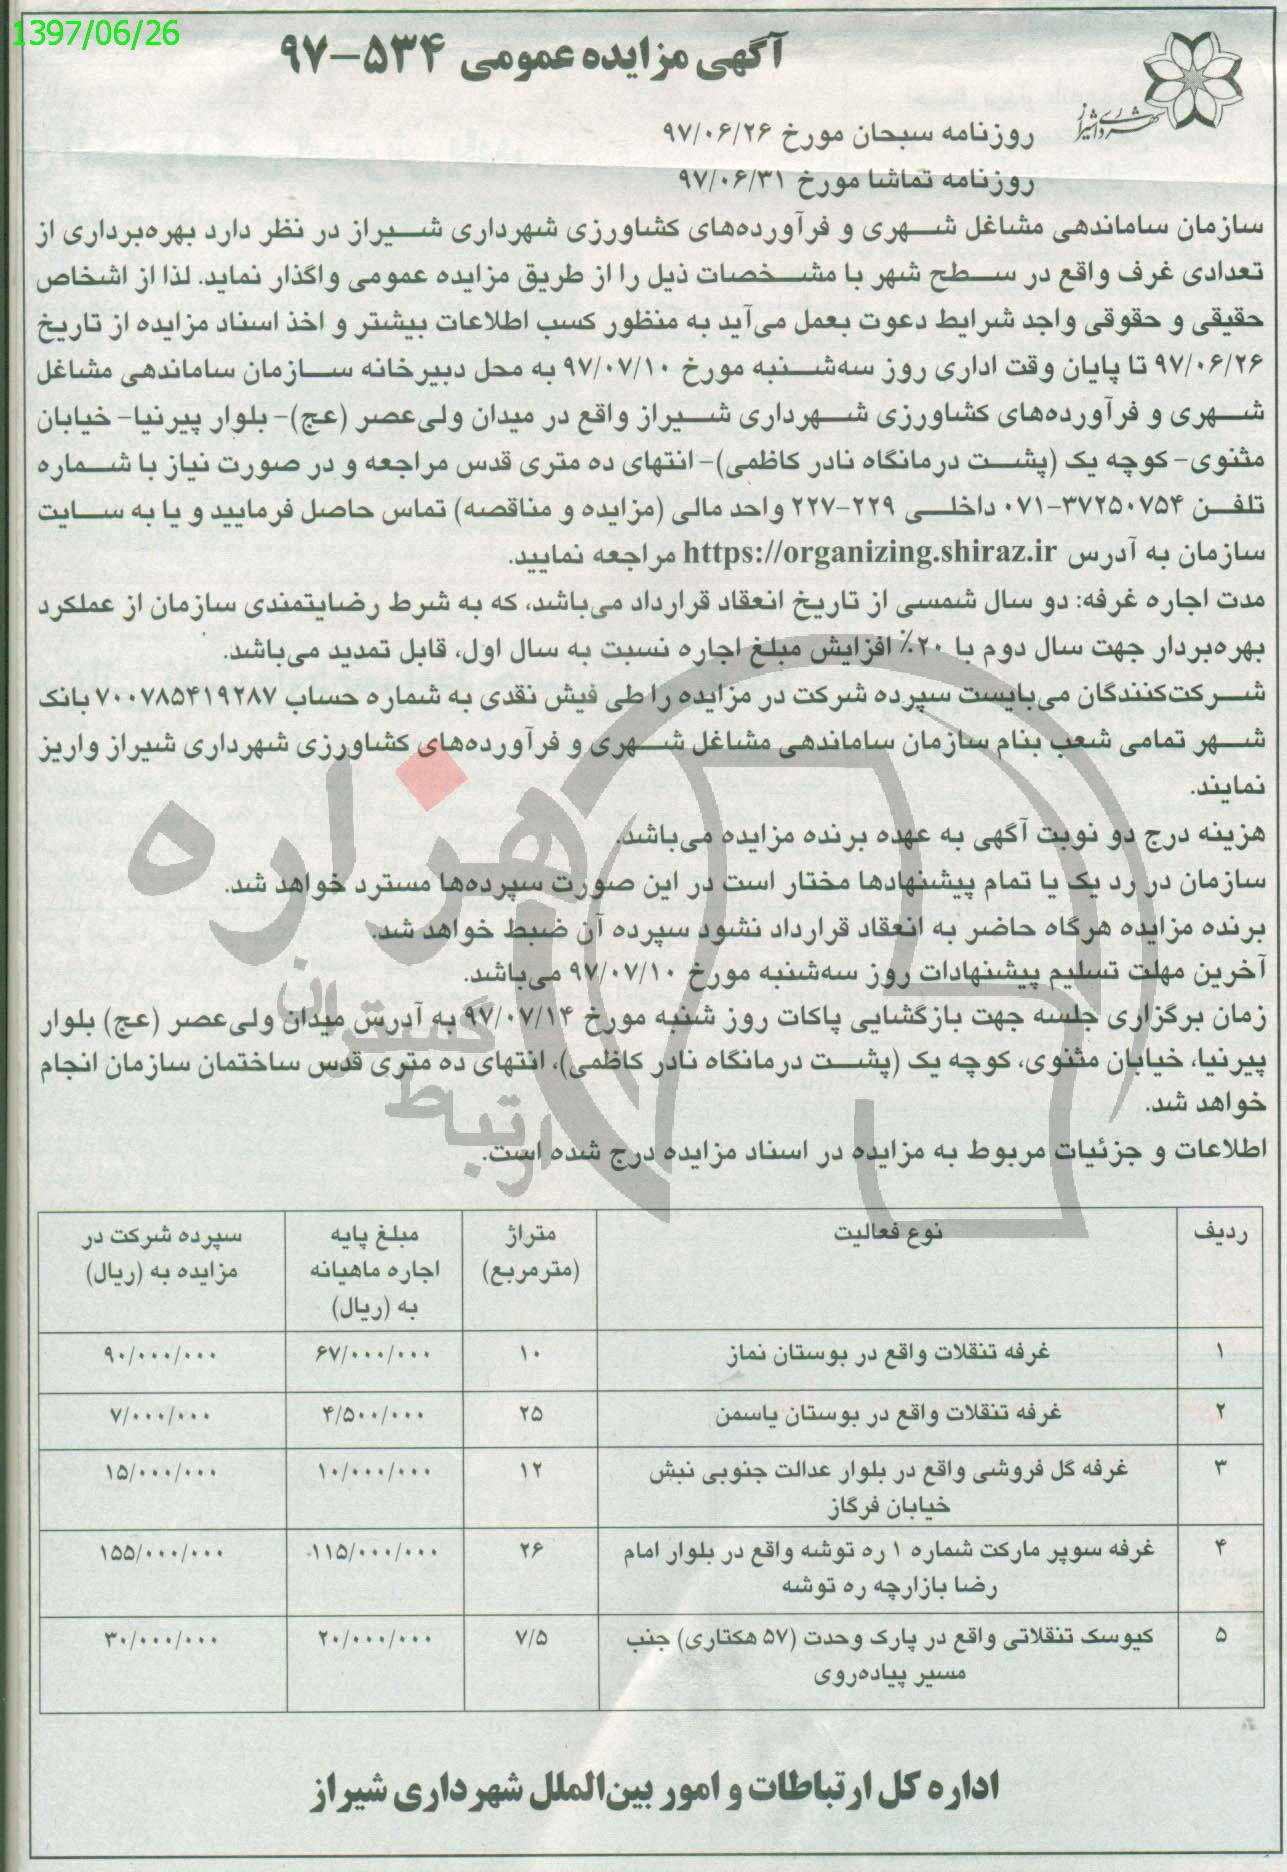 1397/06/26
آگهی مزایده عمومی ۵۳۴-۹۷
شهرداری شیراز
روزنامه سبحان مورخ ۹۷/۰۶/۲۶
روزنامه تماشا مورخ ۹۷/۰۶/۳۱
سازمان ساماندهی مشاغل شهری و فرآورده‌های کشاورزی شهرداری شیراز در نظر دارد بهره‌برداری از
تعدادی غرف واقع در سطح شهر با مشخصات ذیل را از طریق مزایده عمومی واگذار نماید. لذا از اشخاص
حقیقی و حقوقی واجد شرایط دعوت بعمل می‌آید به منظور کسب اطلاعات بیشتر و اخذ اسناد مزایده از تاریخ
۹۷/۰۶/۲۶ تا پایان وقت اداری روز سه‌شنبه مورخ ۹۷/۰۷/۱۰ به محل دبیرخانه سازمان ساماندهی مشاغل
شهری و فرآورده‌های کشاورزی شهرداری شیراز واقع در میدان ولی‌عصر (عج)- بلوار پیرنیا- خیابان
مثنوی- کوچه یک (پشت درمانگاه نادر کاظمی)- انتهای ده متری قدس مراجعه و در صورت نیاز با شماره
تلفن ۳۷۲۵۰۷۵۴-۰۷۱ داخلی ۲۲۹-۲۲۷ واحد مالی (مزایده و مناقصه) تماس حاصل فرمایید و یا به سایت
سازمان به آدرس https://organizing.shiraz.ir مراجعه نمایید.
مدت اجاره غرفه: دو سال شمسی از تاریخ انعقاد قرارداد می‌باشد، که به شرط رضایتمندی سازمان از عملکرد
بهره‌بردار جهت سال دوم با ۲۰٪ افزایش مبلغ اجاره نسبت به سال اول، قابل تمدید می‌باشد.
شرکت‌کنندگان می‌بایست سپرده شرکت در مزایده را طی فیش نقدی به شماره حساب ۷۰۰۷۸۵۴۱۹۲۸۷ بانک
شهر تمامی شعب بنام سازمان ساماندهی مشاغل شهری و فرآورده‌های کشاورزی شهرداری شیراز واریز
نمایند.
هزینه درج دو نوبت آگهی به عهده برنده مزایده می‌باشد.
سازمان در رد یک یا تمام پیشنهادها مختار است در این صورت سپرده‌ها مسترد خواهد شد.
برنده مزایده هرگاه حاضر به انعقاد قرارداد نشود سپرده آن ضبط خواهد شد.
آخرین مهلت تسلیم پیشنهادات روز سه‌شنبه مورخ ۹۷/۰۷/۱۰ می‌باشد.
زمان برگزاری جلسه جهت بازگشایی پاکات روز شنبه مورخ ۹۷/۰۷/۱۴ به آدرس میدان ولی‌عصر (عج) بلوار
پیرنیا، خیابان مثنوی، کوچه یک (پشت درمانگاه نادر کاظمی)، انتهای ده متری قدس ساختمان سازمان انجام
خواهد شد.
اطلاعات و جزئیات مربوط به مزایده در اسناد مزایده درج شده است.
هزاره
گستران
ارتباط
ردیف نوع فعالیت متراژ (مترمربع) مبلغ پایه اجاره ماهیانه به (ریال) سپرده شرکت در مزایده به (ریال)
۱ غرفه تنقلات واقع در بوستان نماز ۱۰ ۶۷/۰۰۰/۰۰۰ ۹۰/۰۰۰/۰۰۰
۲ غرفه تنقلات واقع در بوستان یاسمن ۲۵ ۴/۵۰۰/۰۰۰ ۷/۰۰۰/۰۰۰
۳ غرفه گل فروشی واقع در بلوار عدالت جنوبی نبش خیابان فرگاز ۱۲ ۱۰/۰۰۰/۰۰۰ ۱۵/۰۰۰/۰۰۰
۴ غرفه سوپر مارکت شماره ۱ ره توشه واقع در بلوار امام رضا بازارچه ره توشه ۲۶ ۱۱۵/۰۰۰/۰۰۰ ۱۵۵/۰۰۰/۰۰۰
۵ کیوسک تنقلاتی واقع در پارک وحدت (۵۷ هکتاری) جنب مسیر پیاده‌روی ۷/۵ ۲۰/۰۰۰/۰۰۰ ۳۰/۰۰۰/۰۰۰
اداره کل ارتباطات و امور بین‌الملل شهرداری شیراز